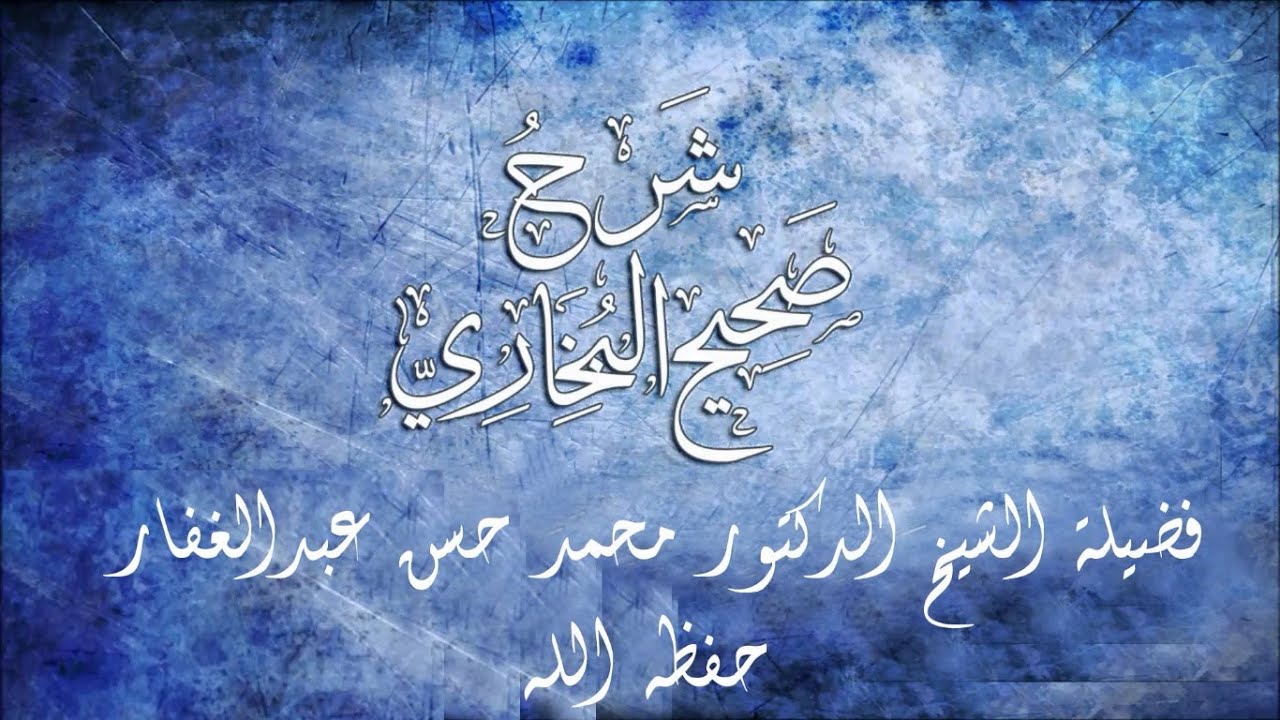 شَرَحُ
صَحِيحِ البُخَارِيِّ
فضيلة الشيخ الدكتور محمد حسن عبدالغفار
حفظه الله